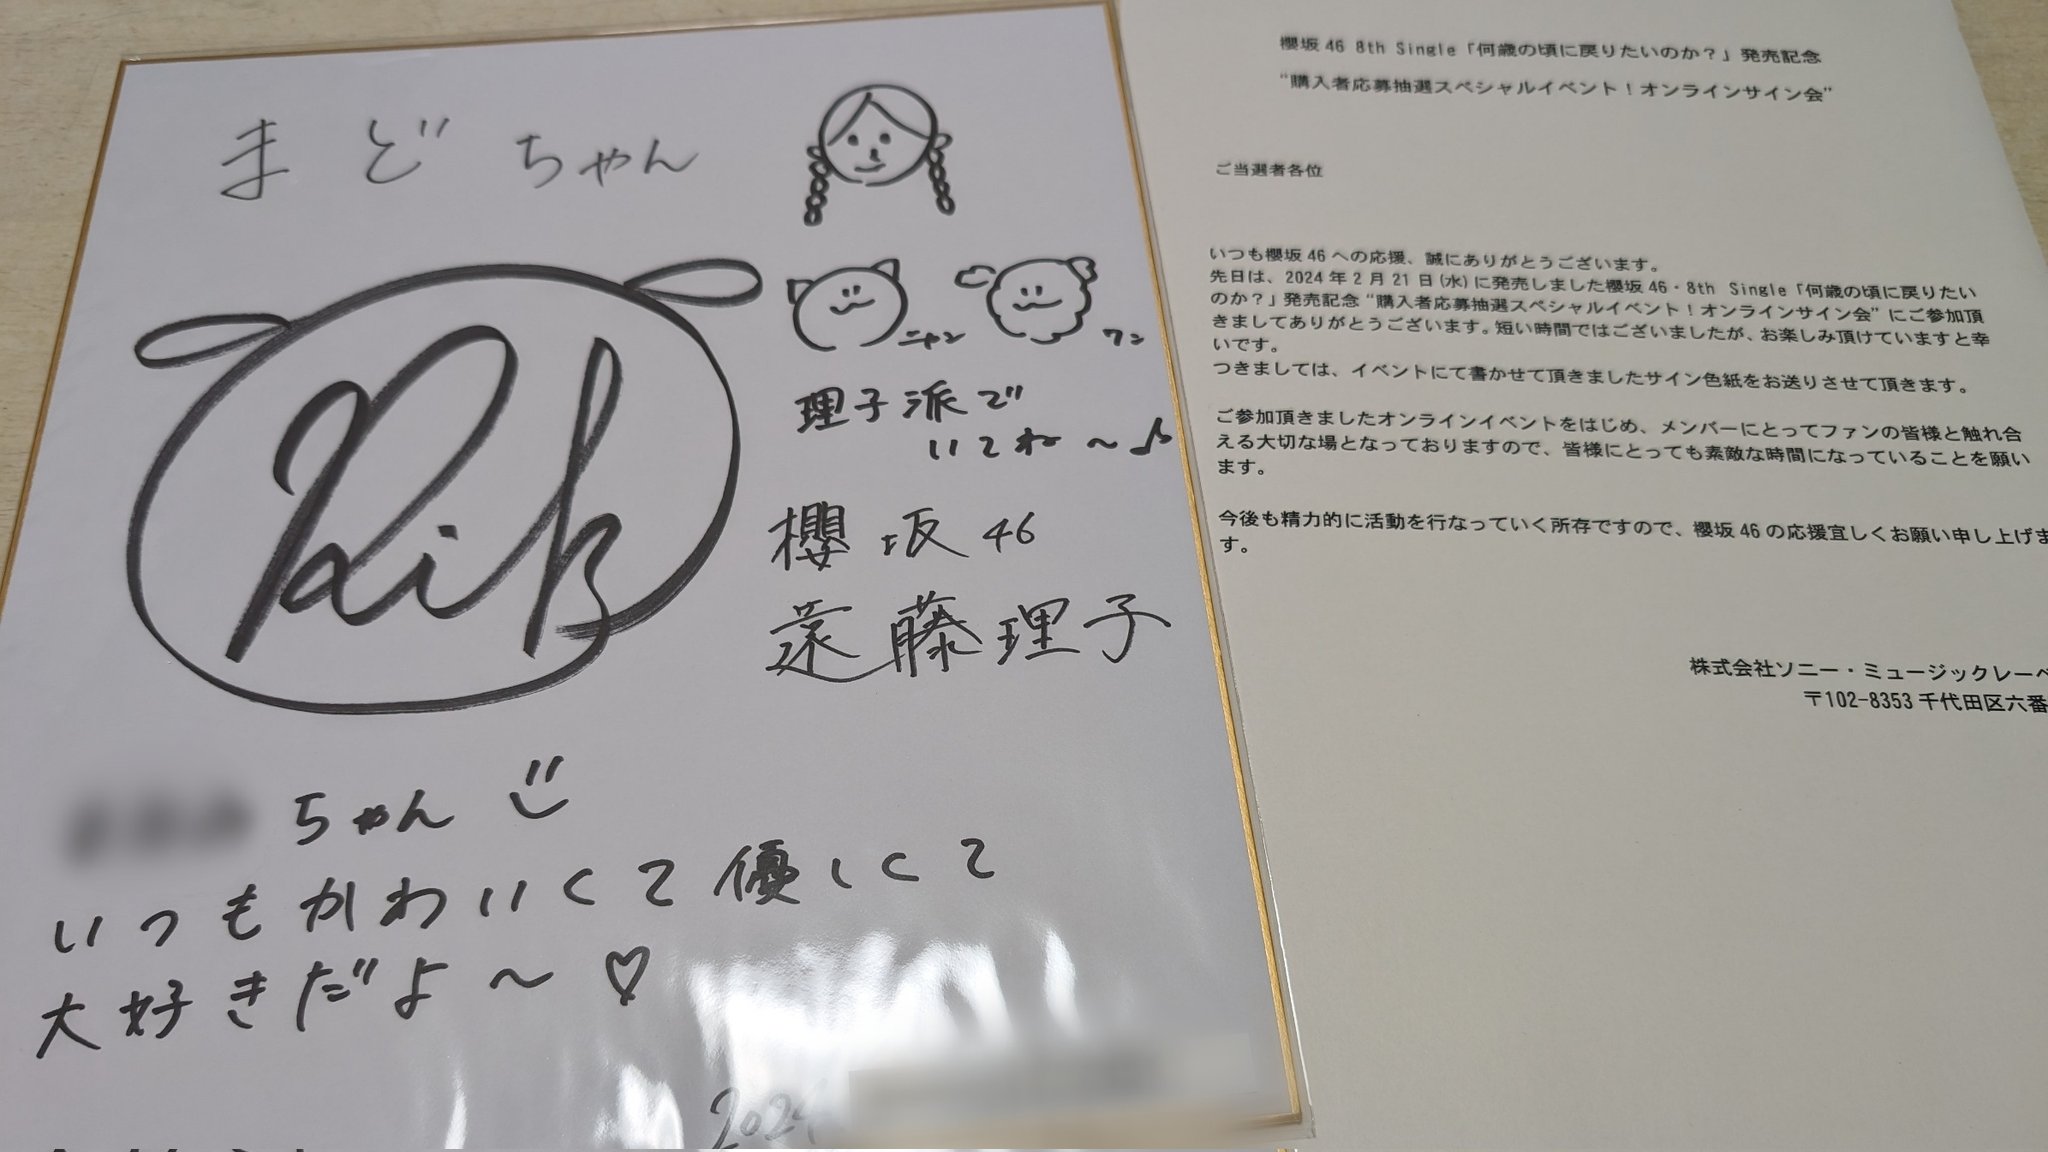 まどちゃん
Rik
ニャン
ワン
理子派で
いてね～♪
櫻坂46
遠藤理子
ちゃん
いつもかわいくて優しくて
大好きだよ～♡
2024
櫻坂46 8th Single「何歳の頃に戻りたいのか？」発売記念
“購入者応募抽選スペシャルイベント！オンラインサイン会”
ご当選者各位
いつも櫻坂46への応援、誠にありがとうございます。
先日は、2024年2月21日(水)に発売しました櫻坂46・8th Single「何歳の頃に戻りたい
のか？」発売記念“購入者応募抽選スペシャルイベント！オンラインサイン会”にご参加頂
きましてありがとうございます。短い時間ではございましたが、お楽しみ頂けていますと幸
いです。
つきましては、イベントにて書かせて頂きましたサイン色紙をお送りさせて頂きます。
ご参加頂きましたオンラインイベントをはじめ、メンバーにとってファンの皆様と触れ合
える大切な場となっておりますので、皆様にとっても素敵な時間になっていることを願い
ます。
今後も精力的に活動を行なっていく所存ですので、櫻坂46の応援宜しくお願い申し上げま
す。
株式会社ソニー・ミュージックレーベ
〒102-8353 千代田区六番